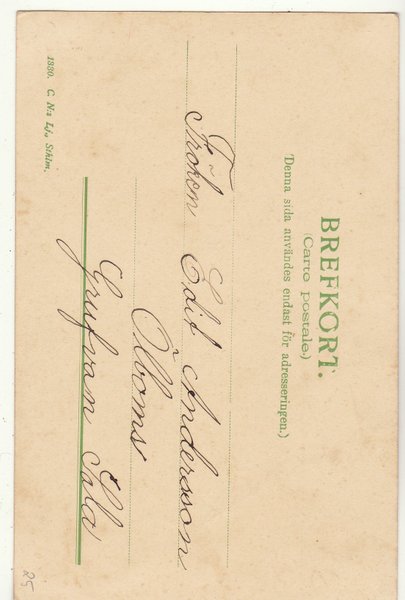 BREFKORT.
(Carte postale.)
(Denna sida användes endast för adresseringen.)
Fröken Edit Andersson
Olboms
Grufvan Sala
1330. C. N:s Lj., Sthlm.
25